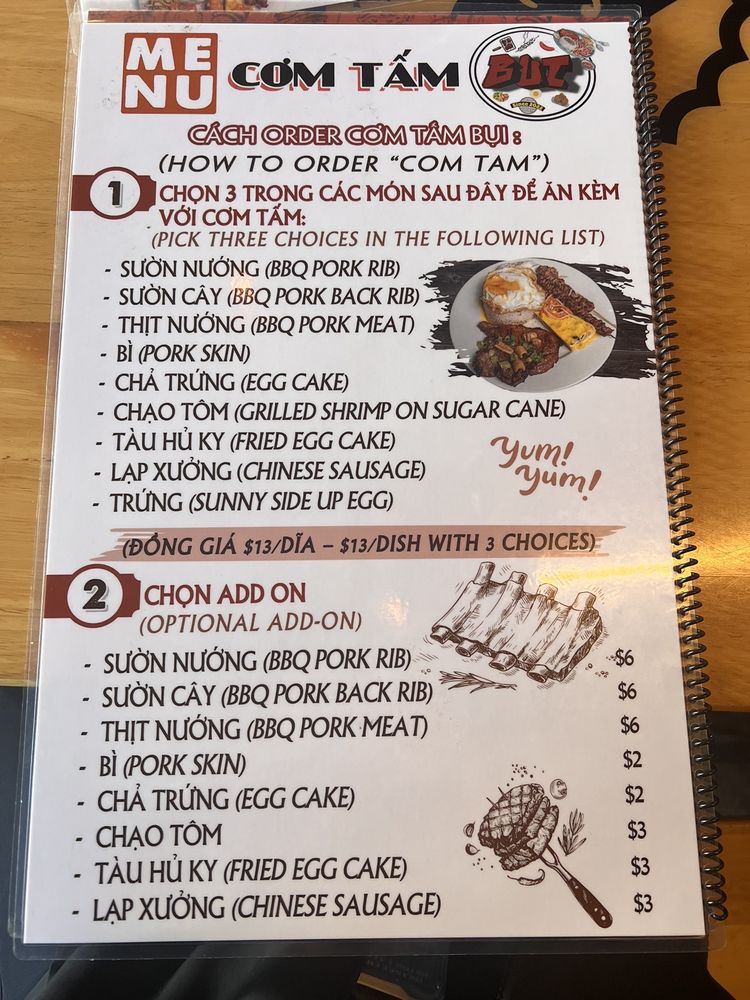 MENU
CƠM TẤM
BỤI
Since 2024
CÁCH ORDER CƠM TẤM BỤI :
(HOW TO ORDER “COM TAM”)
1
CHỌN 3 TRONG CÁC MÓN SAU ĐÂY ĐỂ ĂN KÈM
VỚI CƠM TẤM:
(PICK THREE CHOICES IN THE FOLLOWING LIST)
- SƯỜN NƯỚNG (BBQ PORK RIB)
- SƯỜN CÂY (BBQ PORK BACK RIB)
- THỊT NƯỚNG (BBQ PORK MEAT)
- BÌ (PORK SKIN)
- CHẢ TRỨNG (EGG CAKE)
- CHẠO TÔM (GRILLED SHRIMP ON SUGAR CANE)
- TÀU HỦ KY (FRIED EGG CAKE)
- LẠP XƯỞNG (CHINESE SAUSAGE)
- TRỨNG (SUNNY SIDE UP EGG)
Yum!
Yum!
(ĐỒNG GIÁ $13/DĨA – $13/DISH WITH 3 CHOICES)
2
CHỌN ADD ON
(OPTIONAL ADD-ON)
- SƯỜN NƯỚNG (BBQ PORK RIB) $6
- SƯỜN CÂY (BBQ PORK BACK RIB) $6
- THỊT NƯỚNG (BBQ PORK MEAT) $6
- BÌ (PORK SKIN) $2
- CHẢ TRỨNG (EGG CAKE) $2
- CHẠO TÔM $3
- TÀU HỦ KY (FRIED EGG CAKE) $3
- LẠP XƯỞNG (CHINESE SAUSAGE) $3